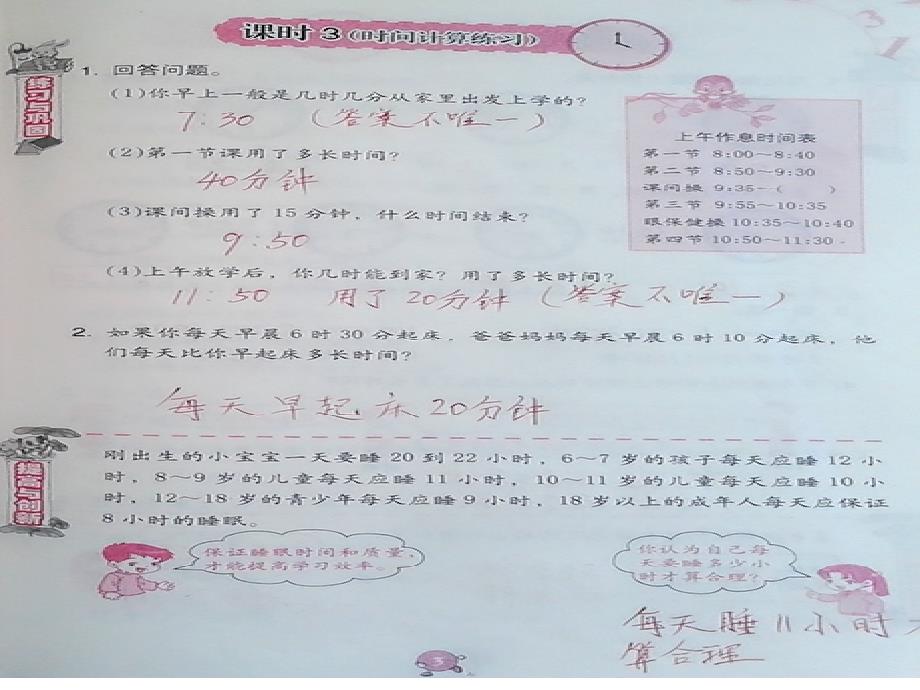 课时3（时间计算练习）
练习与巩固
1. 回答问题。
(1)你早上一般是几时几分从家里出发上学的？
7:30 （答案不唯一）
(2)第一节课用了多长时间？
40分钟
(3)课间操用了15分钟，什么时间结束？
9:50
(4)上午放学后，你几时能到家？用了多长时间？
11:50 用了20分钟（答案不唯一）
上午作息时间表
第一节 8:00～8:40
第二节 8:50～9:30
课间操 9:35～( )
第三节 9:55～10:35
眼保健操 10:35～10:40
第四节 10:50～11:30
2. 如果你每天早晨6时30分起床，爸爸妈妈每天早晨6时10分起床，他
们每天比你早起床多长时间？
每天早起床20分钟
提高与创新
刚出生的小宝宝一天要睡20到22小时，6～7岁的孩子每天应睡12小
时，8～9岁的儿童每天应睡11小时，10～11岁的儿童每天应睡10小
时，12～18岁的青少年每天应睡9小时，18岁以上的成年人每天应保证
8小时的睡眠。
保证睡眠时间和质量，
才能提高学习效率。
你认为自己每
天要睡多少小
时才算合理？
每天睡11小时才
算合理
3